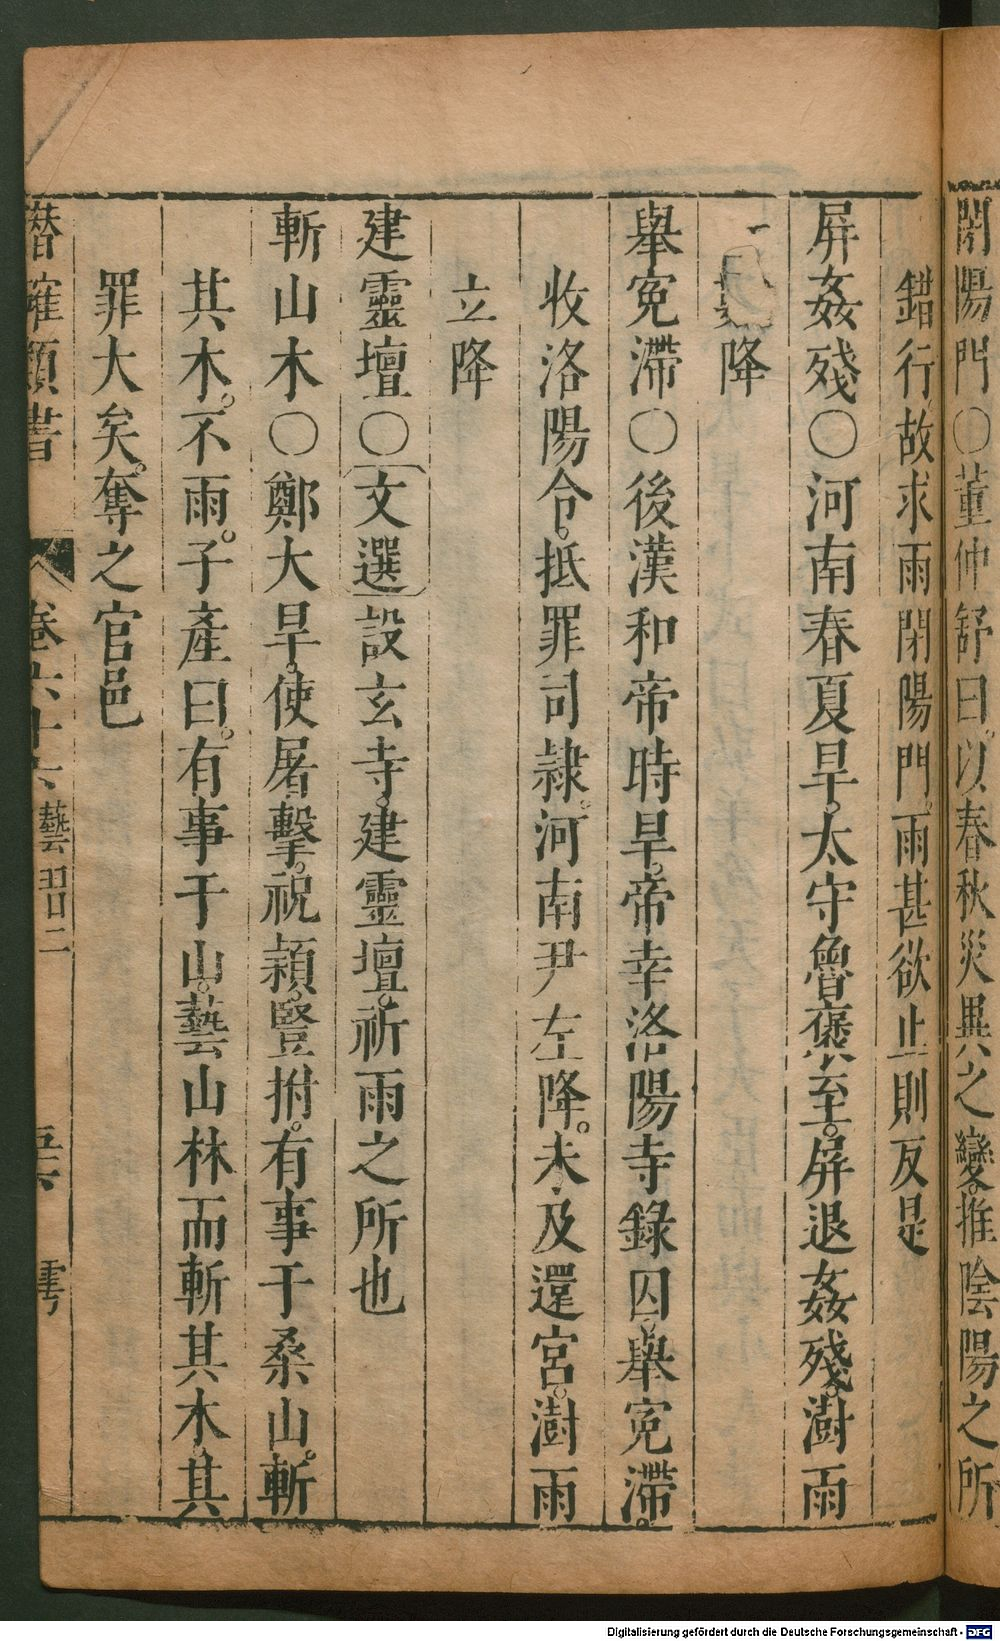 閉陽門○董仲舒曰。以春秋災異之變。推陰陽之所
錯行。故求雨閉陽門。雨甚欲止則反是
屏姦殘○河南春夏旱。太守魯褒至。屏退姦殘。澍雨
降
舉寃滯○後漢和帝時旱。帝幸洛陽寺錄囚。舉寃滯。
收洛陽令。抵罪司隷。河南尹左降。未及還宮。澍雨
立降
建靈壇○文選設玄寺。建靈壇。祈雨之所也
斬山木○鄭大旱。使屠擊。祝頴。豎拊。有事于桑山。斬
其木。不雨。子產曰。有事于山。藝山林而斬其木。其
罪大矣。奪之官邑
潛確類書 卷六十六 藝習二 五六 雩
Digitalisierung gefördert durch die Deutsche Forschungsgemeinschaft - DFG